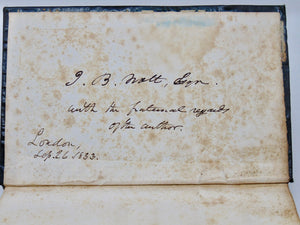 J. B. Watt, Esqr.
with the fraternal regards
of the author.
London,
Sep. 26 1883.